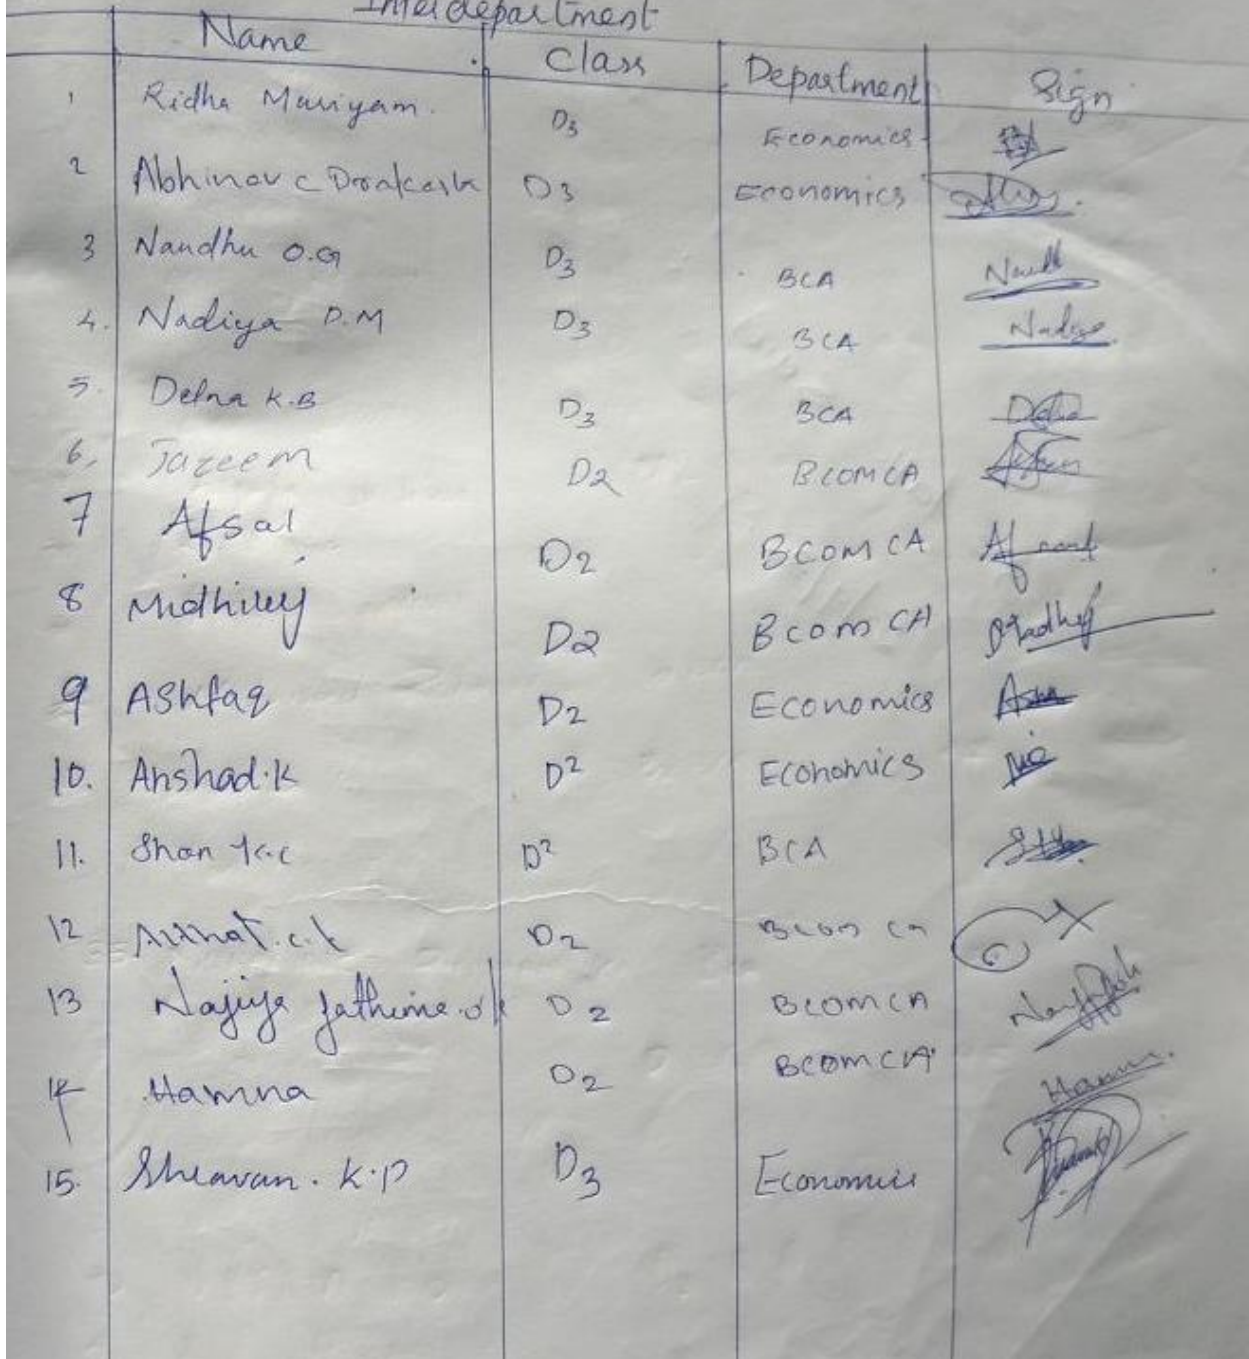 Interdepartment
Name Class Department Sign
1 Ridha Mariyam. D3 Economics
2 Abhinav C D3 Economics
3 Nandhu O.G D3 BCA Nandh
4. Nadiya P.M D3 BCA Nadiya
5. Delna K.B D3 BCA Delna
6. Tazeem D2 BCOM CA
7 Afsal D2 BCOM CA
8 D2 BCOM CA
9 AShfaq D2 Economics
10. Anshad.K D2 Economics
11. Shan K.C D2 BCA
12 D2 BCOM CA
13 Najiya fathima D2 BCOM CA
14 Hamna D2 BCOM CA
15. K.P D3 Economics